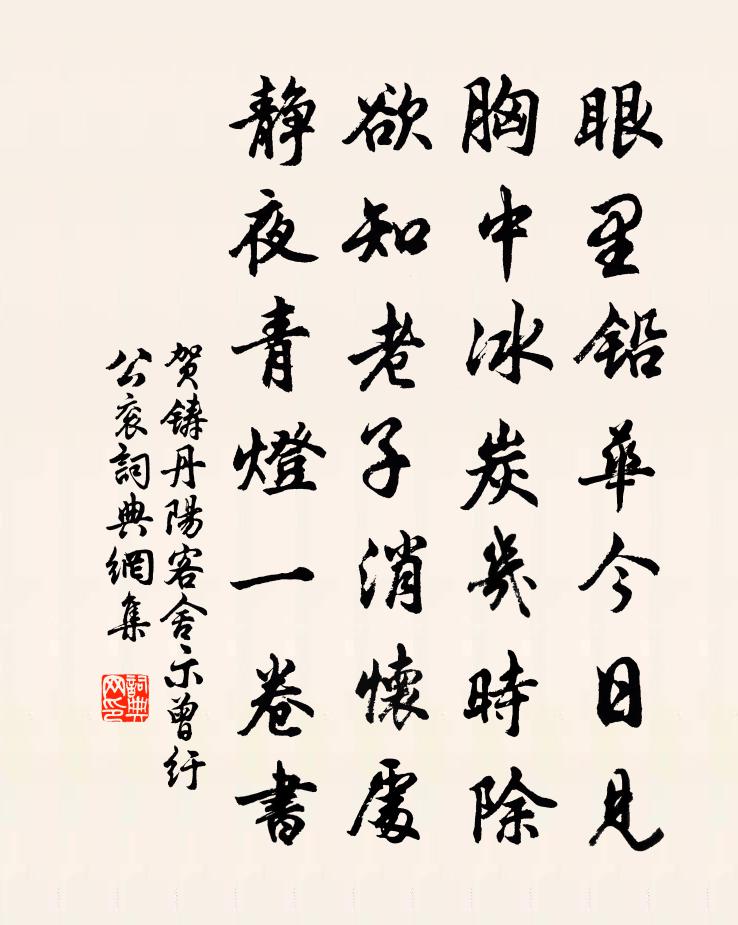 眼里铅華今日見
胸中冰炭幾時除
欲知老子消懷處
静夜青燈一卷書
贺鑄丹陽客舍示曾紆
公衮詞典網集
詞典网印